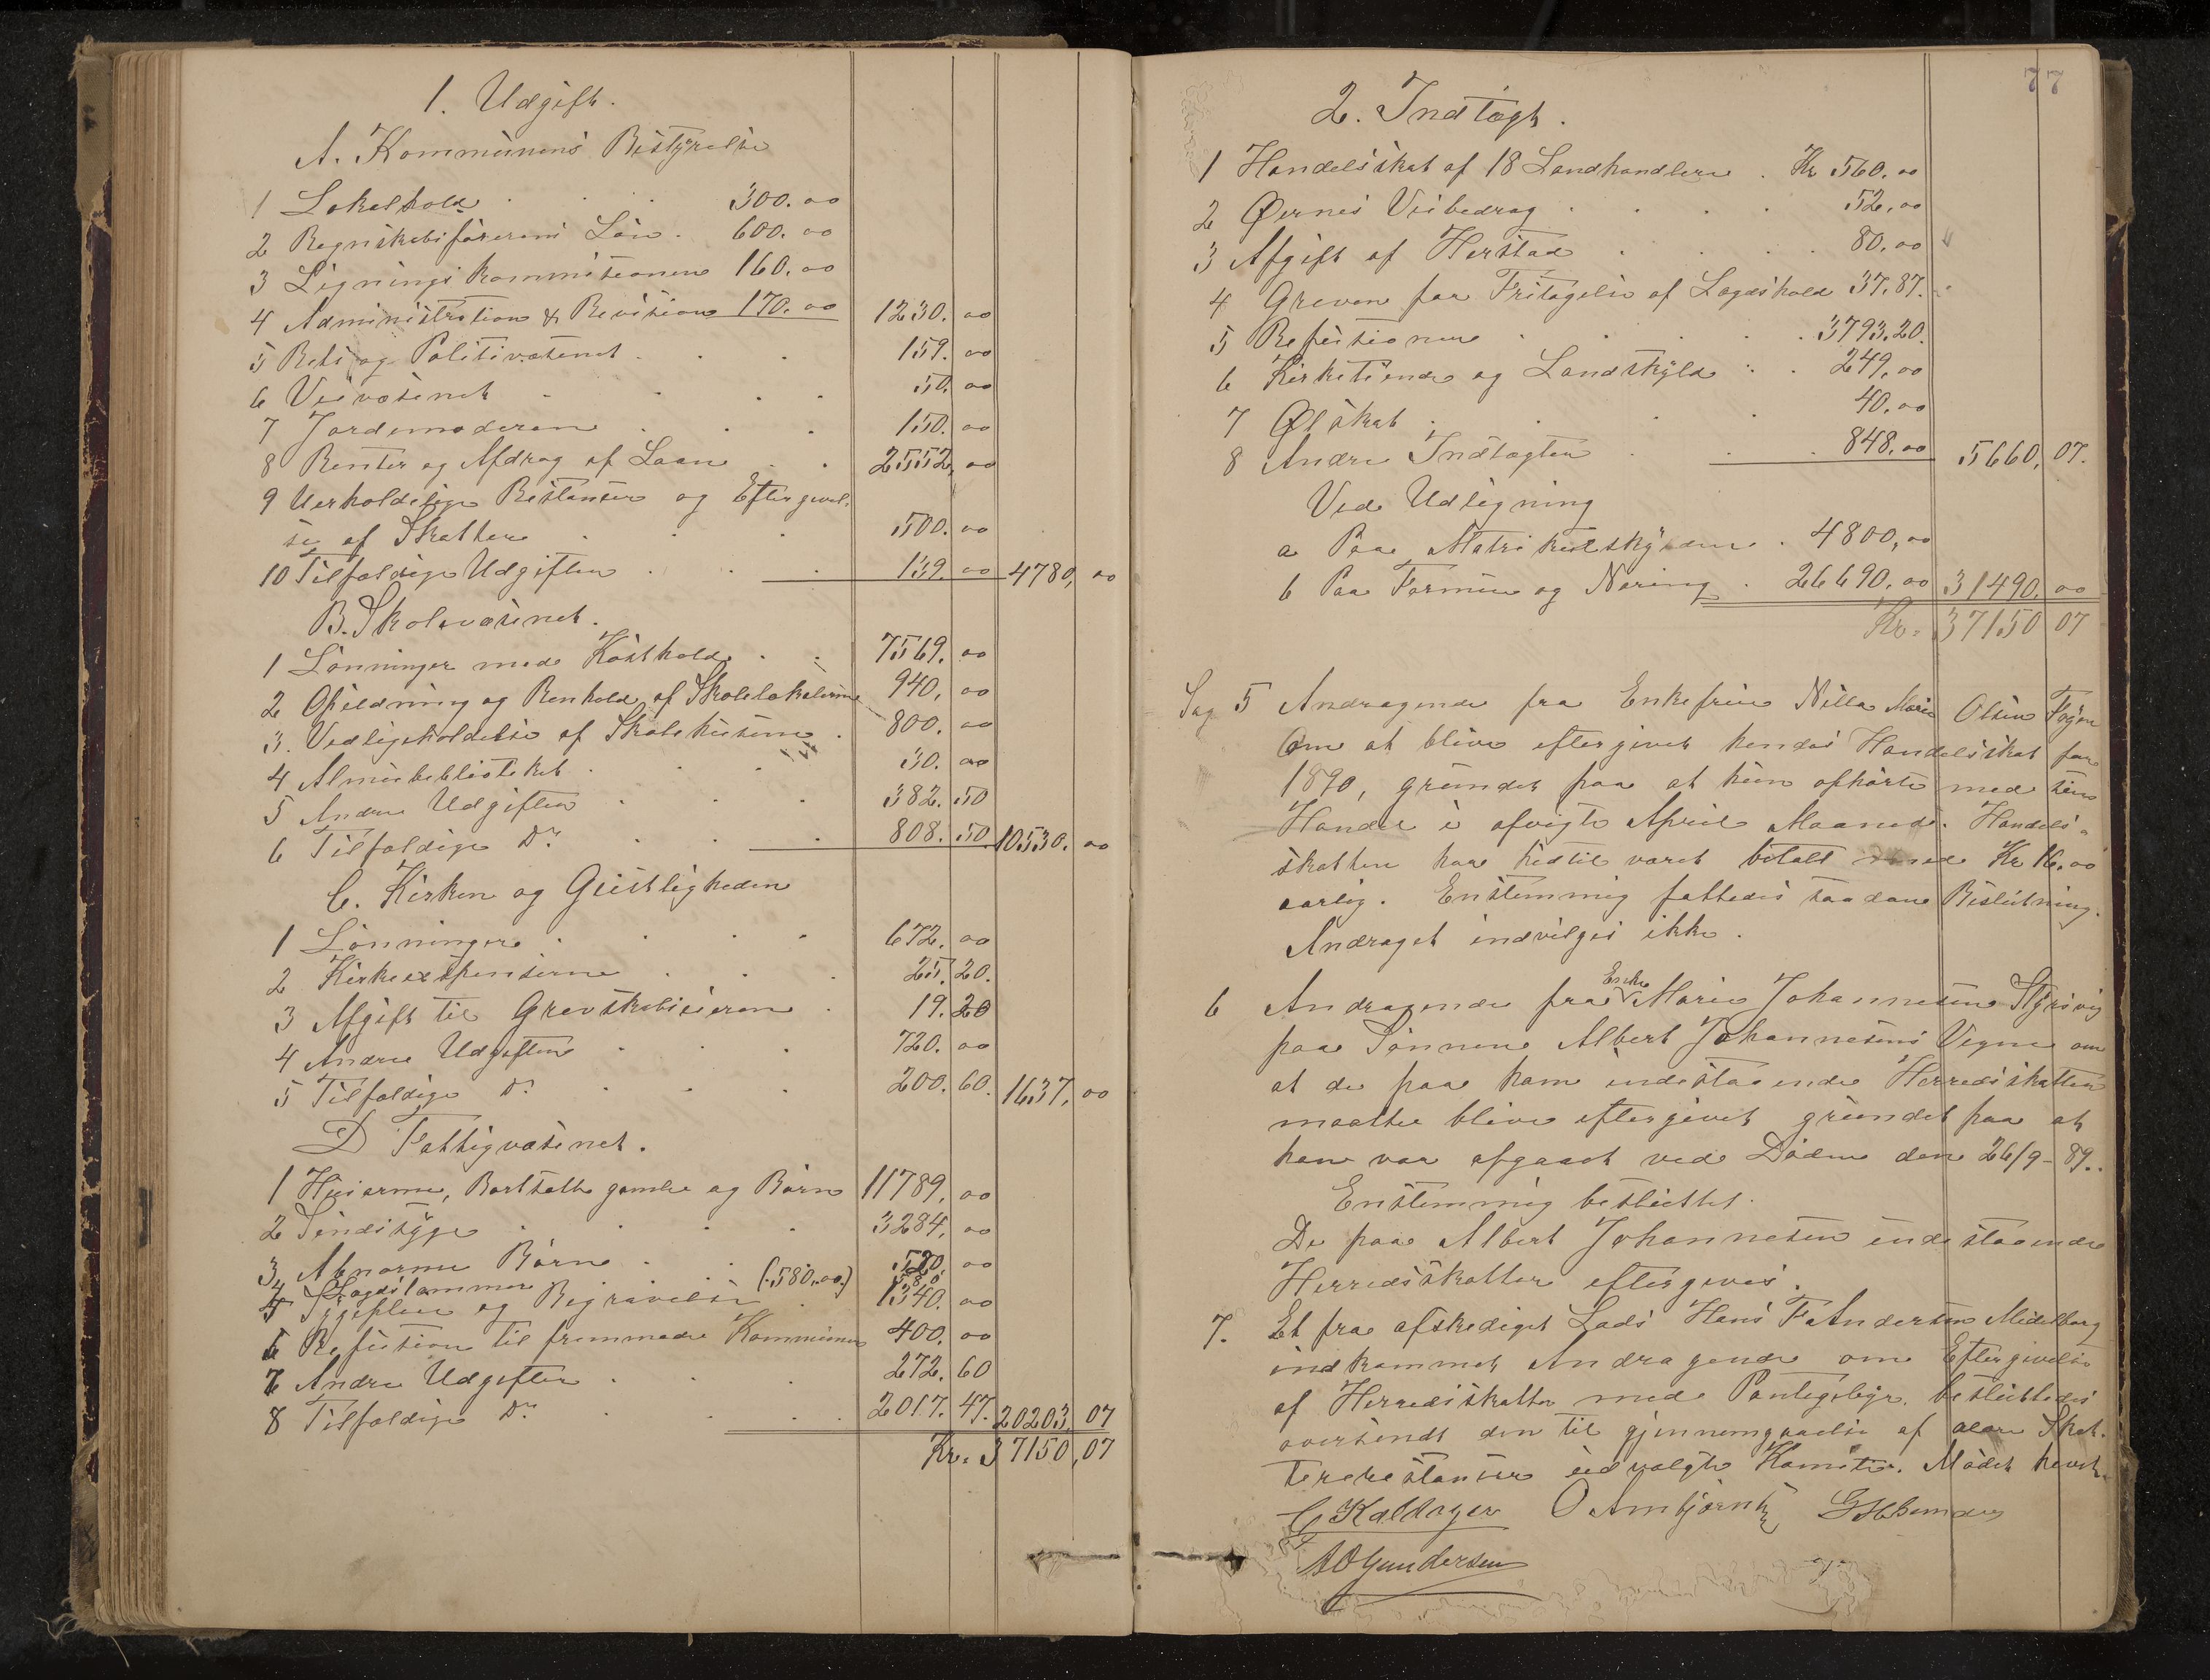 1. Udgift.
A. Kommunens Bestyrelse
1 Lokalhold . . . 300.00
2 Regnskabsførerens Løn . 600.00
3 Ligningskommisionen 160.00
4 Administration & Revision 170.00 1230.00
5 Rets og Politivæsenet . . . 159.00
6 Veivæsenet . . . . 50.00
7 Jordemoderen . . . 150.00
8 Renter og Afdrag af Laan . . 2552,00
9 Uerholdelige Restanser og Eftergivel-
se af Skatter . . . 500.00
10 Tilfældige Udgifter . . . 139.00 4780,00
B. Skolevæsenet.
1 Lønninger med Kosthold . . 7569.00
2 Opildning og Renhold af Skolelokalerne 940,00
3. Vedligeholdelse af Skolehusene . 800.00
4 Almuebiblioteket . . . 30.00
5 Andre Udgifter . . . 382.50
6 Tilfældige Do . . . 808.50. 10530.00
C. Kirken og Geistligheden
1 Lønninger . . . . 672.00
2 Kirkeexspenserne . . . 25.20.
3 Afgift til Grevskabseieren . 19.20
4 Andre Udgifter . . . 720.00
5 Tilfældige Do . . . 200.60. 1637,00
D Fattigvæsenet.
1 Husarme, Bortsatte gamle og Børn 11789,00
2 Sindssyge . . . . 3284,00
3 Abnorme Børn . . 520.00
4 Lægdslemmer (.580.00.) 580,
5 Sygepleie og Begravelse . 1340.00
6 Refusion til fremmede Kommuner 400,00
7 Andre Udgifter . . . 272.60
8 Tilfældige Do . . . . 2017.47. 20203,07
Kr. 37150,07
77
2. Indtægt.
1 Handelsskat af 18 Landhandlere . Kr 560.00
2 Øernes Veibedrag . . . . 52,00
3 Afgift af Herstad . . . . 80,00
4 Greven for Fritagelse af Lægdshold 37.87.
5 Refusioner . . . . . 3793.20.
6 Kirketiende og Landskyld . . 249,00
7 Ølskat . . . . 40,00
8 Andre Indtægter . . . 848,00 5660,07.
Ved Udligning
a Paa Matrikulskylden . 4800,00
b Paa Formue og Næring . 26690.00 31490.00
Kr. 37150 07
Sag 5 Andragende fra Enkefrue Nilla Marie Olsen Føjen
Om at blive eftergivet hendes Handelsskat for
1890, grundet paa at hun ophørte med sin
Handel i afvigte April Maaned. Handels-
skatten har hidtil været betalt med Kr 16.00
aarlig. Enstemmig fattedes saadan Beslutning.
Andraget indvilges ikke.
6 Andragende fra Enke Marie Johannesen Styrsvig
paa Sønnen Albert Johannesens Vegne om
at de paa ham indestaaende Herredsskatter
maatte blive eftergivet grundet paa at
han var afgaaet ved Døden den 26/9-89.
Enstemmig besluttet.
De paa Albert Johannesen indestaaende
Herredsskatter eftergives.
7. Et fra afskediget Lods Hans F Andersen Midelborg
indkommet Andragende om Eftergivelse
af Herredsskatter med Pantegebyr. besluttedes
oversendt den til gjennemgaaelse af ældre Skat-
terestanser udvalgte Komite. Mødet hævet
C Kaldager O Ambjørns
A O Gundersen